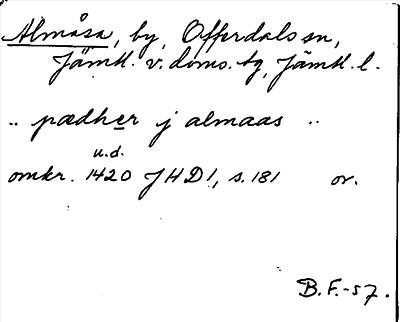 Almåsa, by, Offerdals sn,
Jämtl. v. doms. tg, Jämtl. l.
.. pædher j almaas ..
u.d.
omkr. 1420 JHD1, s. 181 or.
B.F.-57.